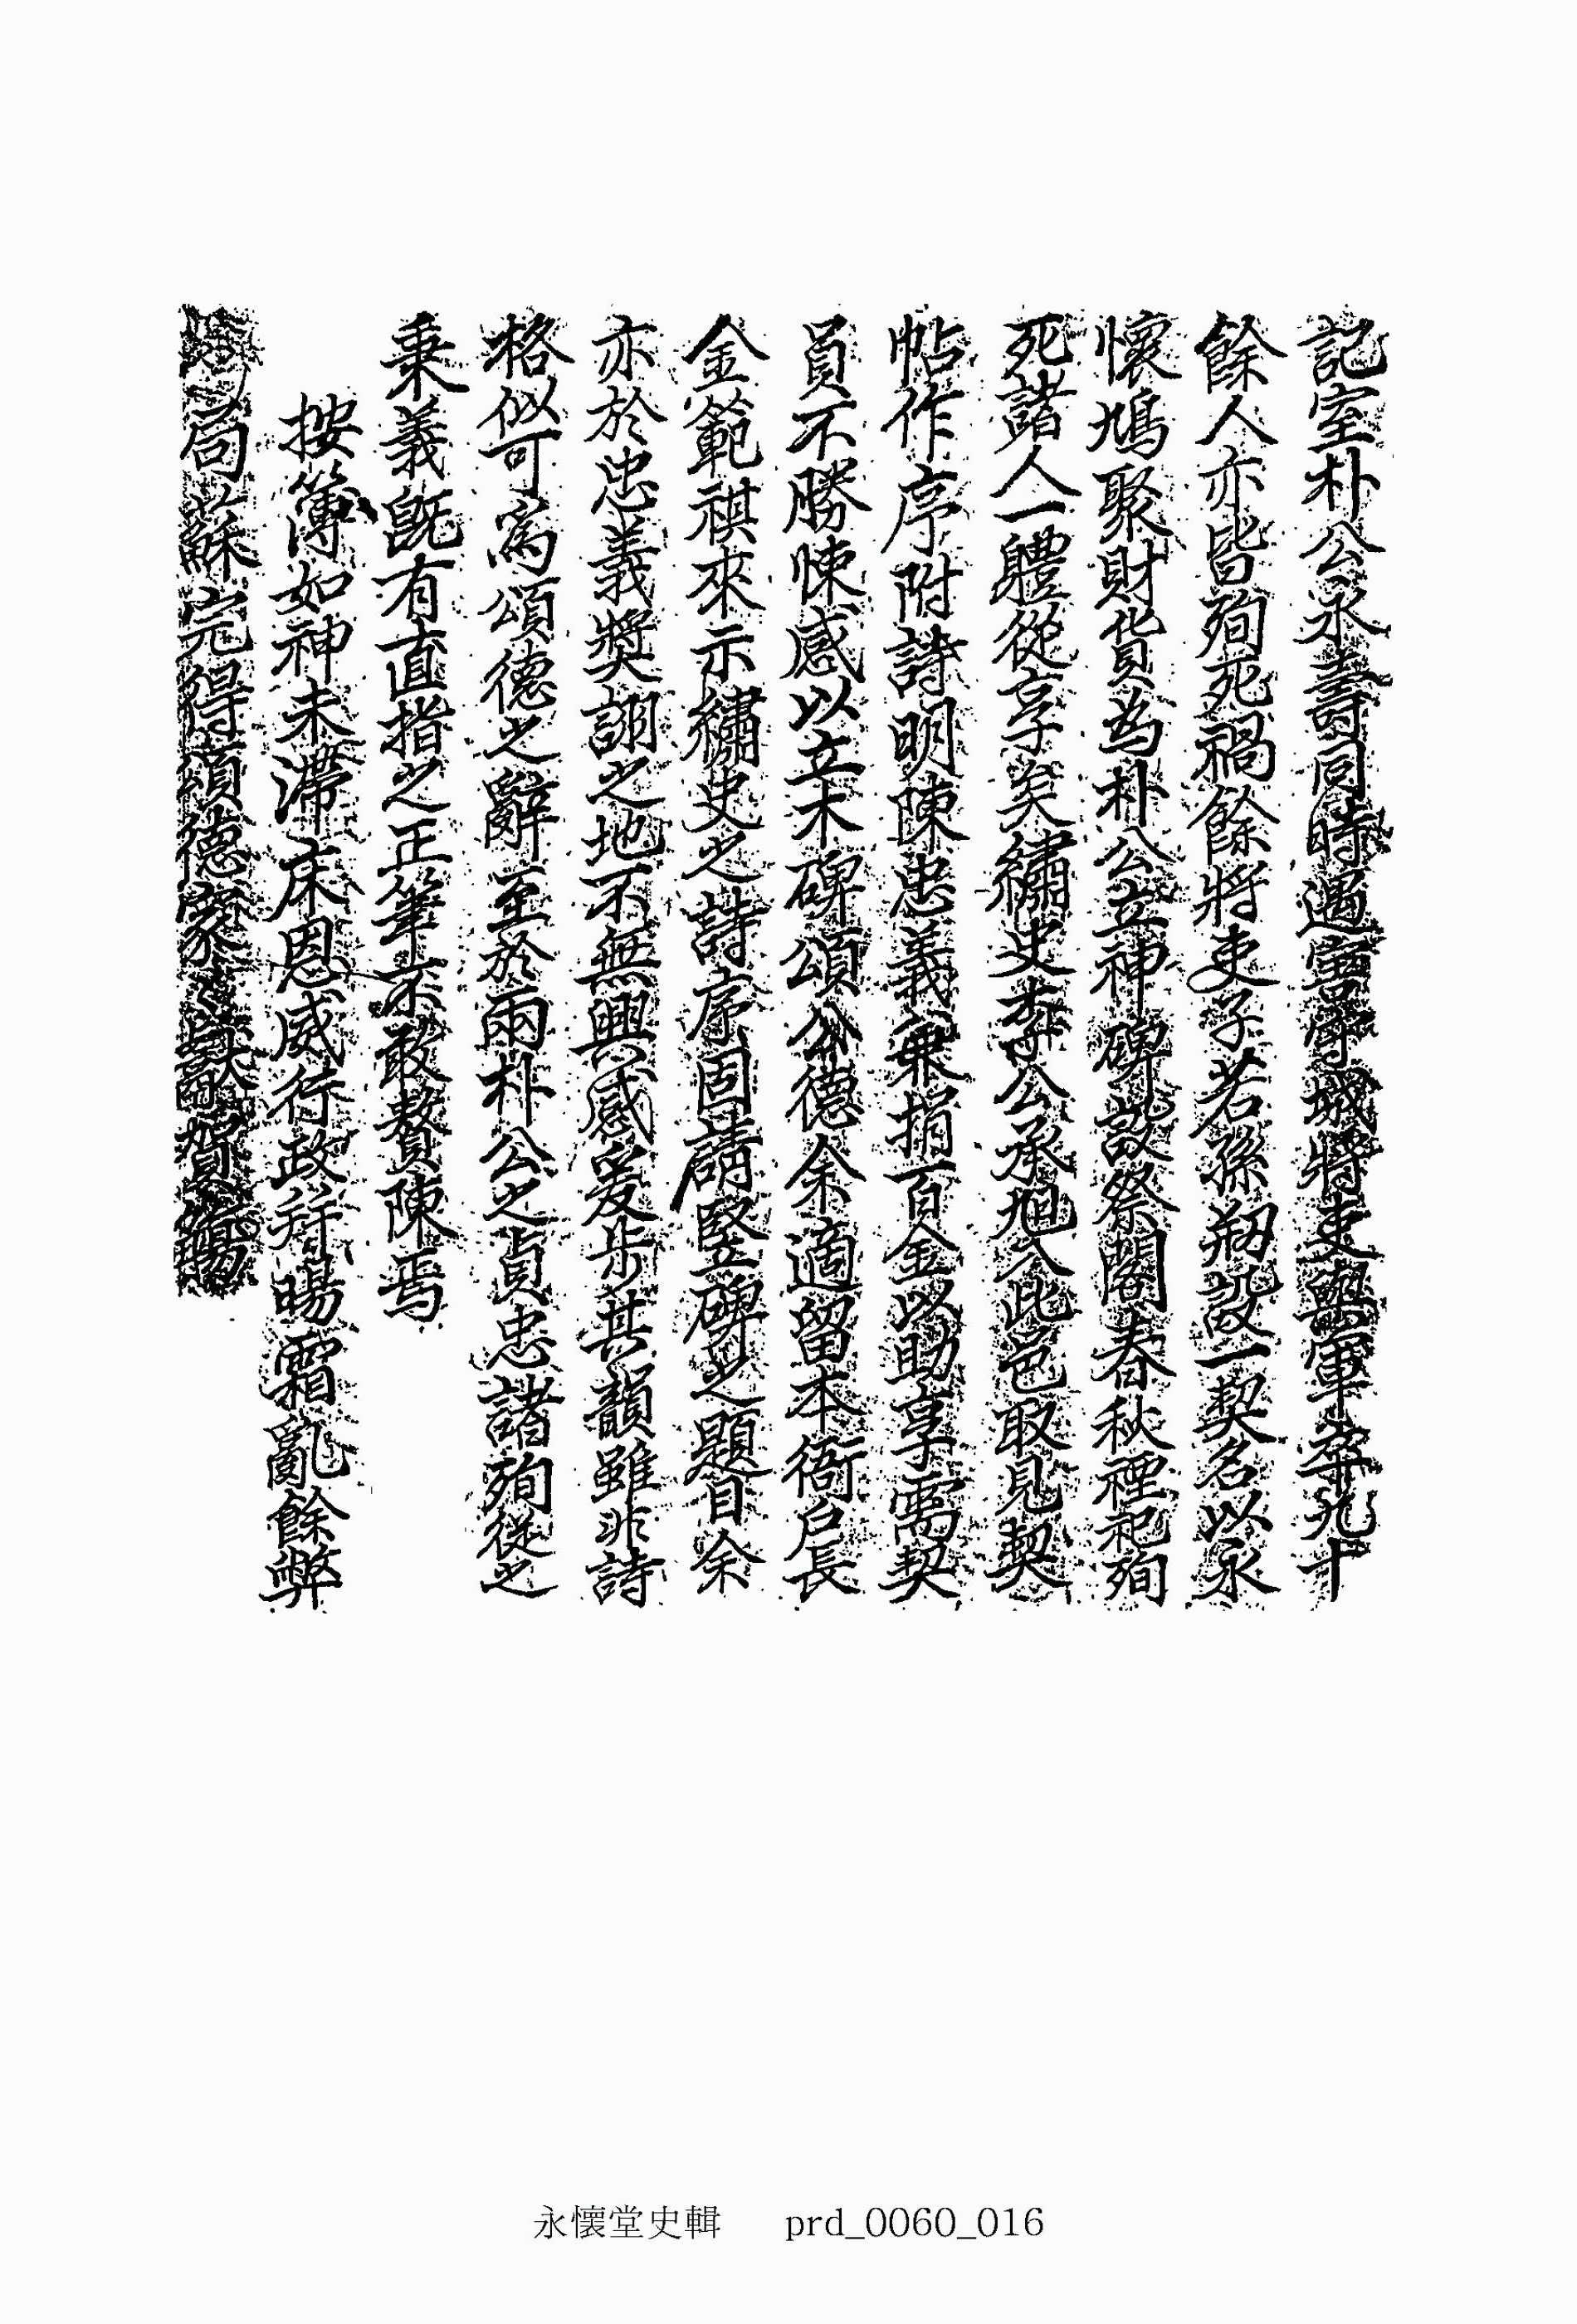 記室朴公永壽同時遇害守城將吏與軍卒九十
餘人亦皆殉死禍餘將吏子若孫剏設一契名以永
懷鳩聚財貨為朴公立神碑設祭閣春秋禋祀殉
死諸人一軆從享矣繡史李公承旭入此邑取見契
帖作序附詩明陳忠義兼捐百金以助享需契
員不勝悚感以立木碑頌公德余適留本衙戶長
金範祺來示繡史之詩序固請竪碑之題目余
亦於忠義獎詡之地不無興感爰步其韻雖非詩
格似可寫頌德之辭至於兩朴公之貞忠諸殉從之
秉義旣有直指之正筆余敢贅陳焉
按簿如神未滯床恩威行政幷暘霜亂餘弊
局蘇完得頌德
永懷堂史輯 prd_0060_016